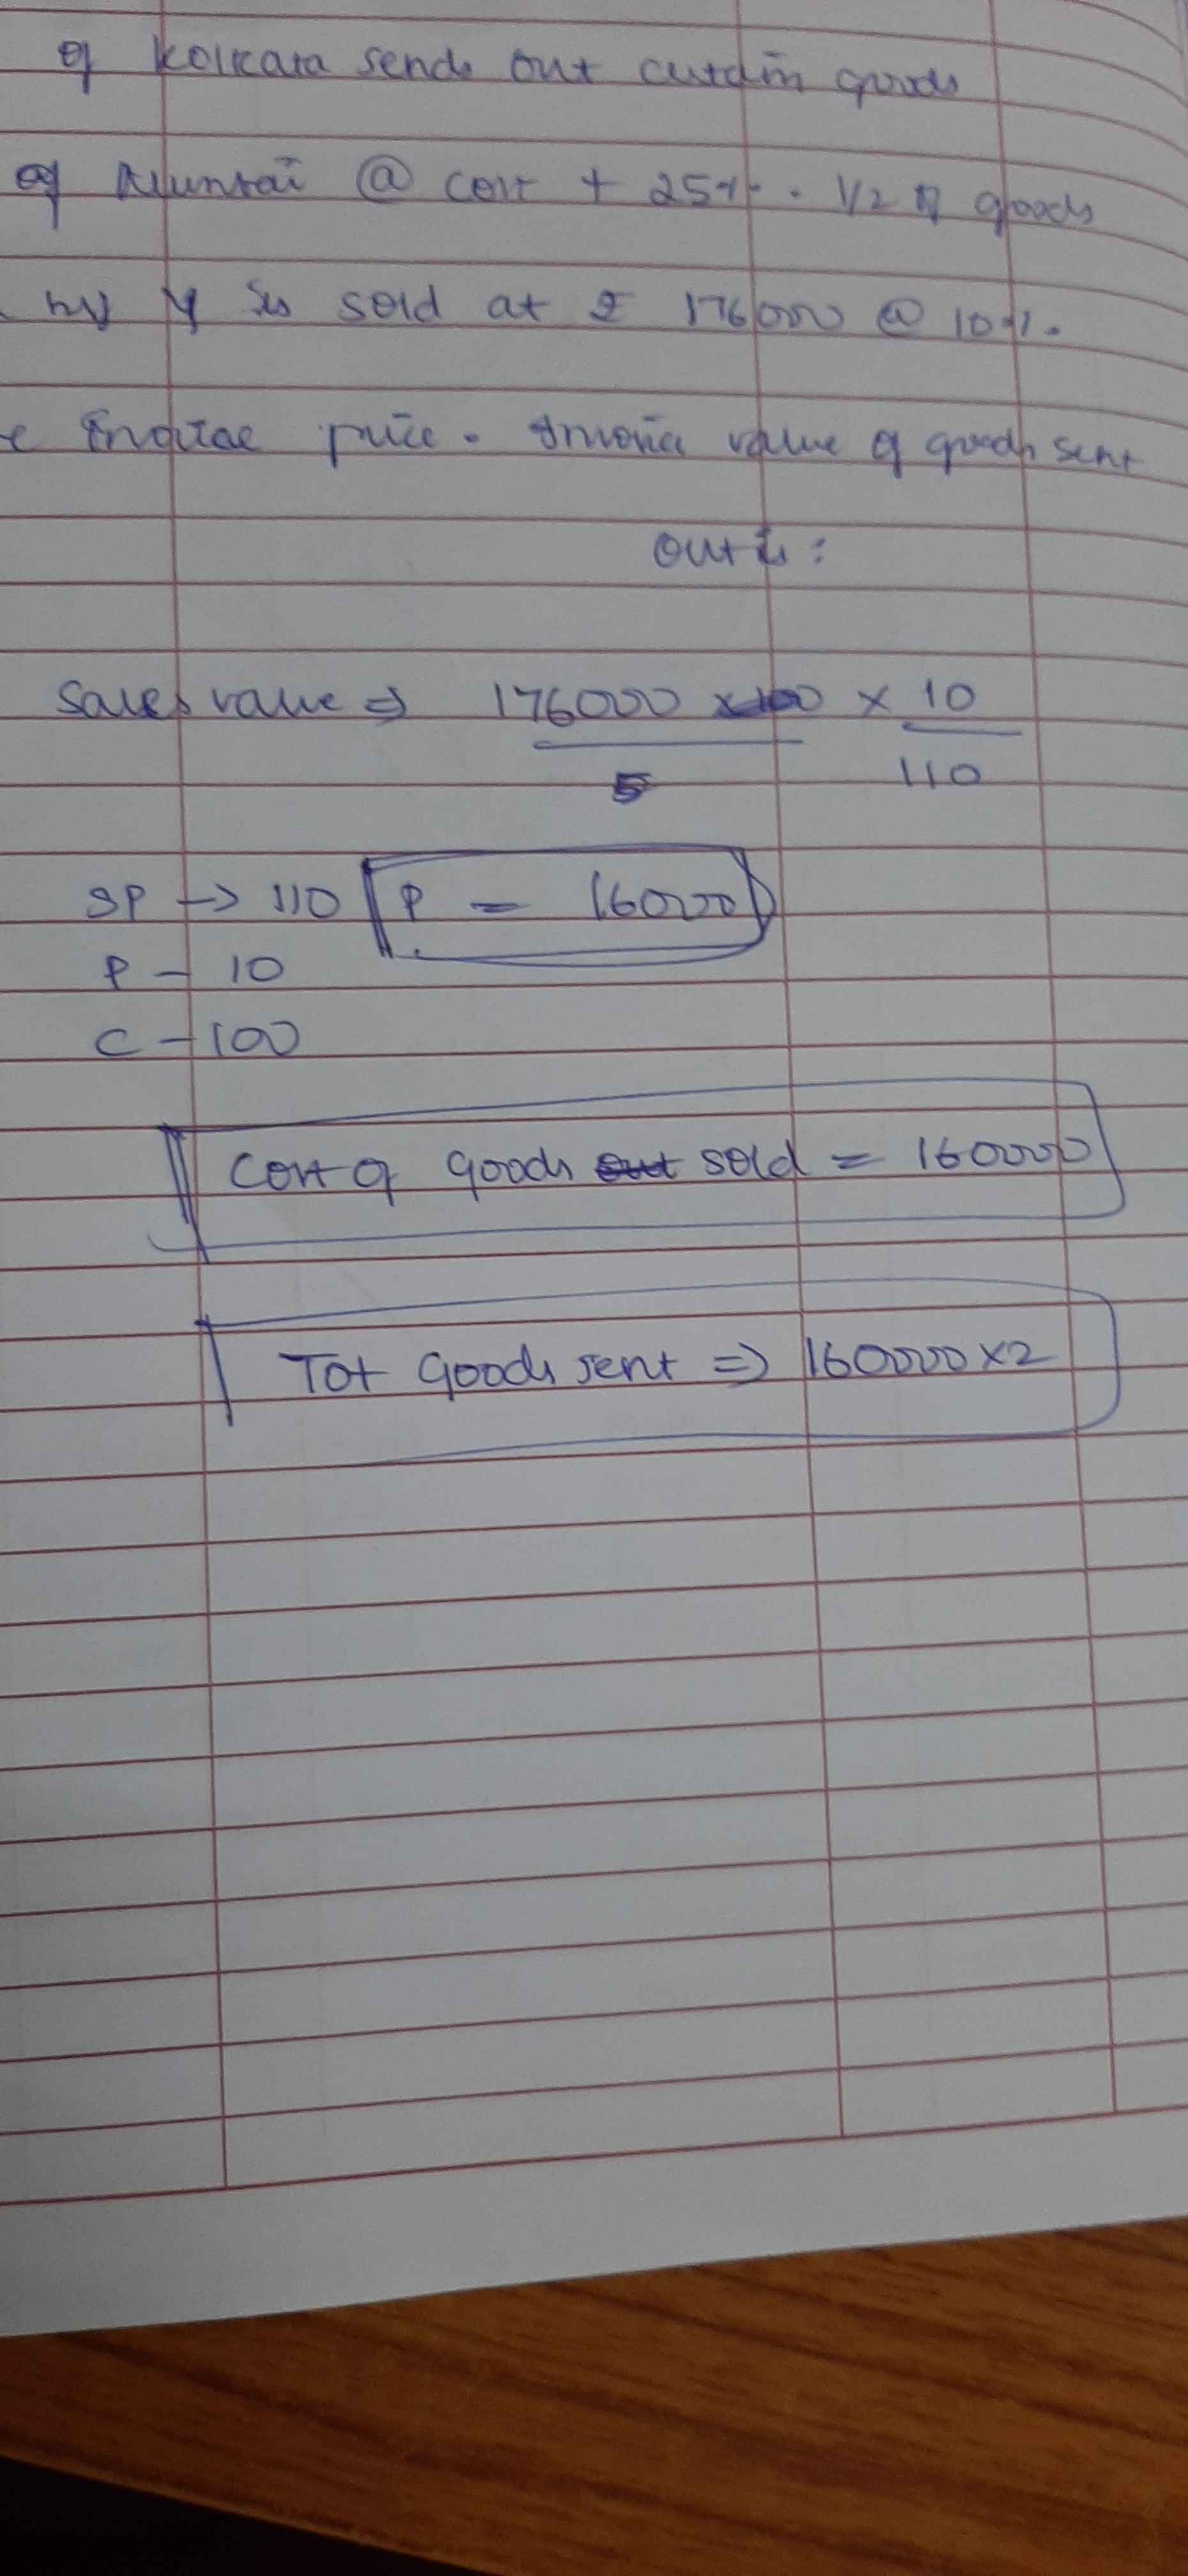 of Kolkata sends out certain goods
of Mumbai @ cost + 25%. 1/2 of goods
by Y is sold at ₹ 176000 @ 10%.
e Invoice price. Invoice value of goods sent
out is:
Sales value ⇒ 176000 x100 × 10
5 110
SP → 110 P - 16000
P - 10
C - 100
Cost of goods out sold = 160000
Tot Goods sent ⇒ 160000x2